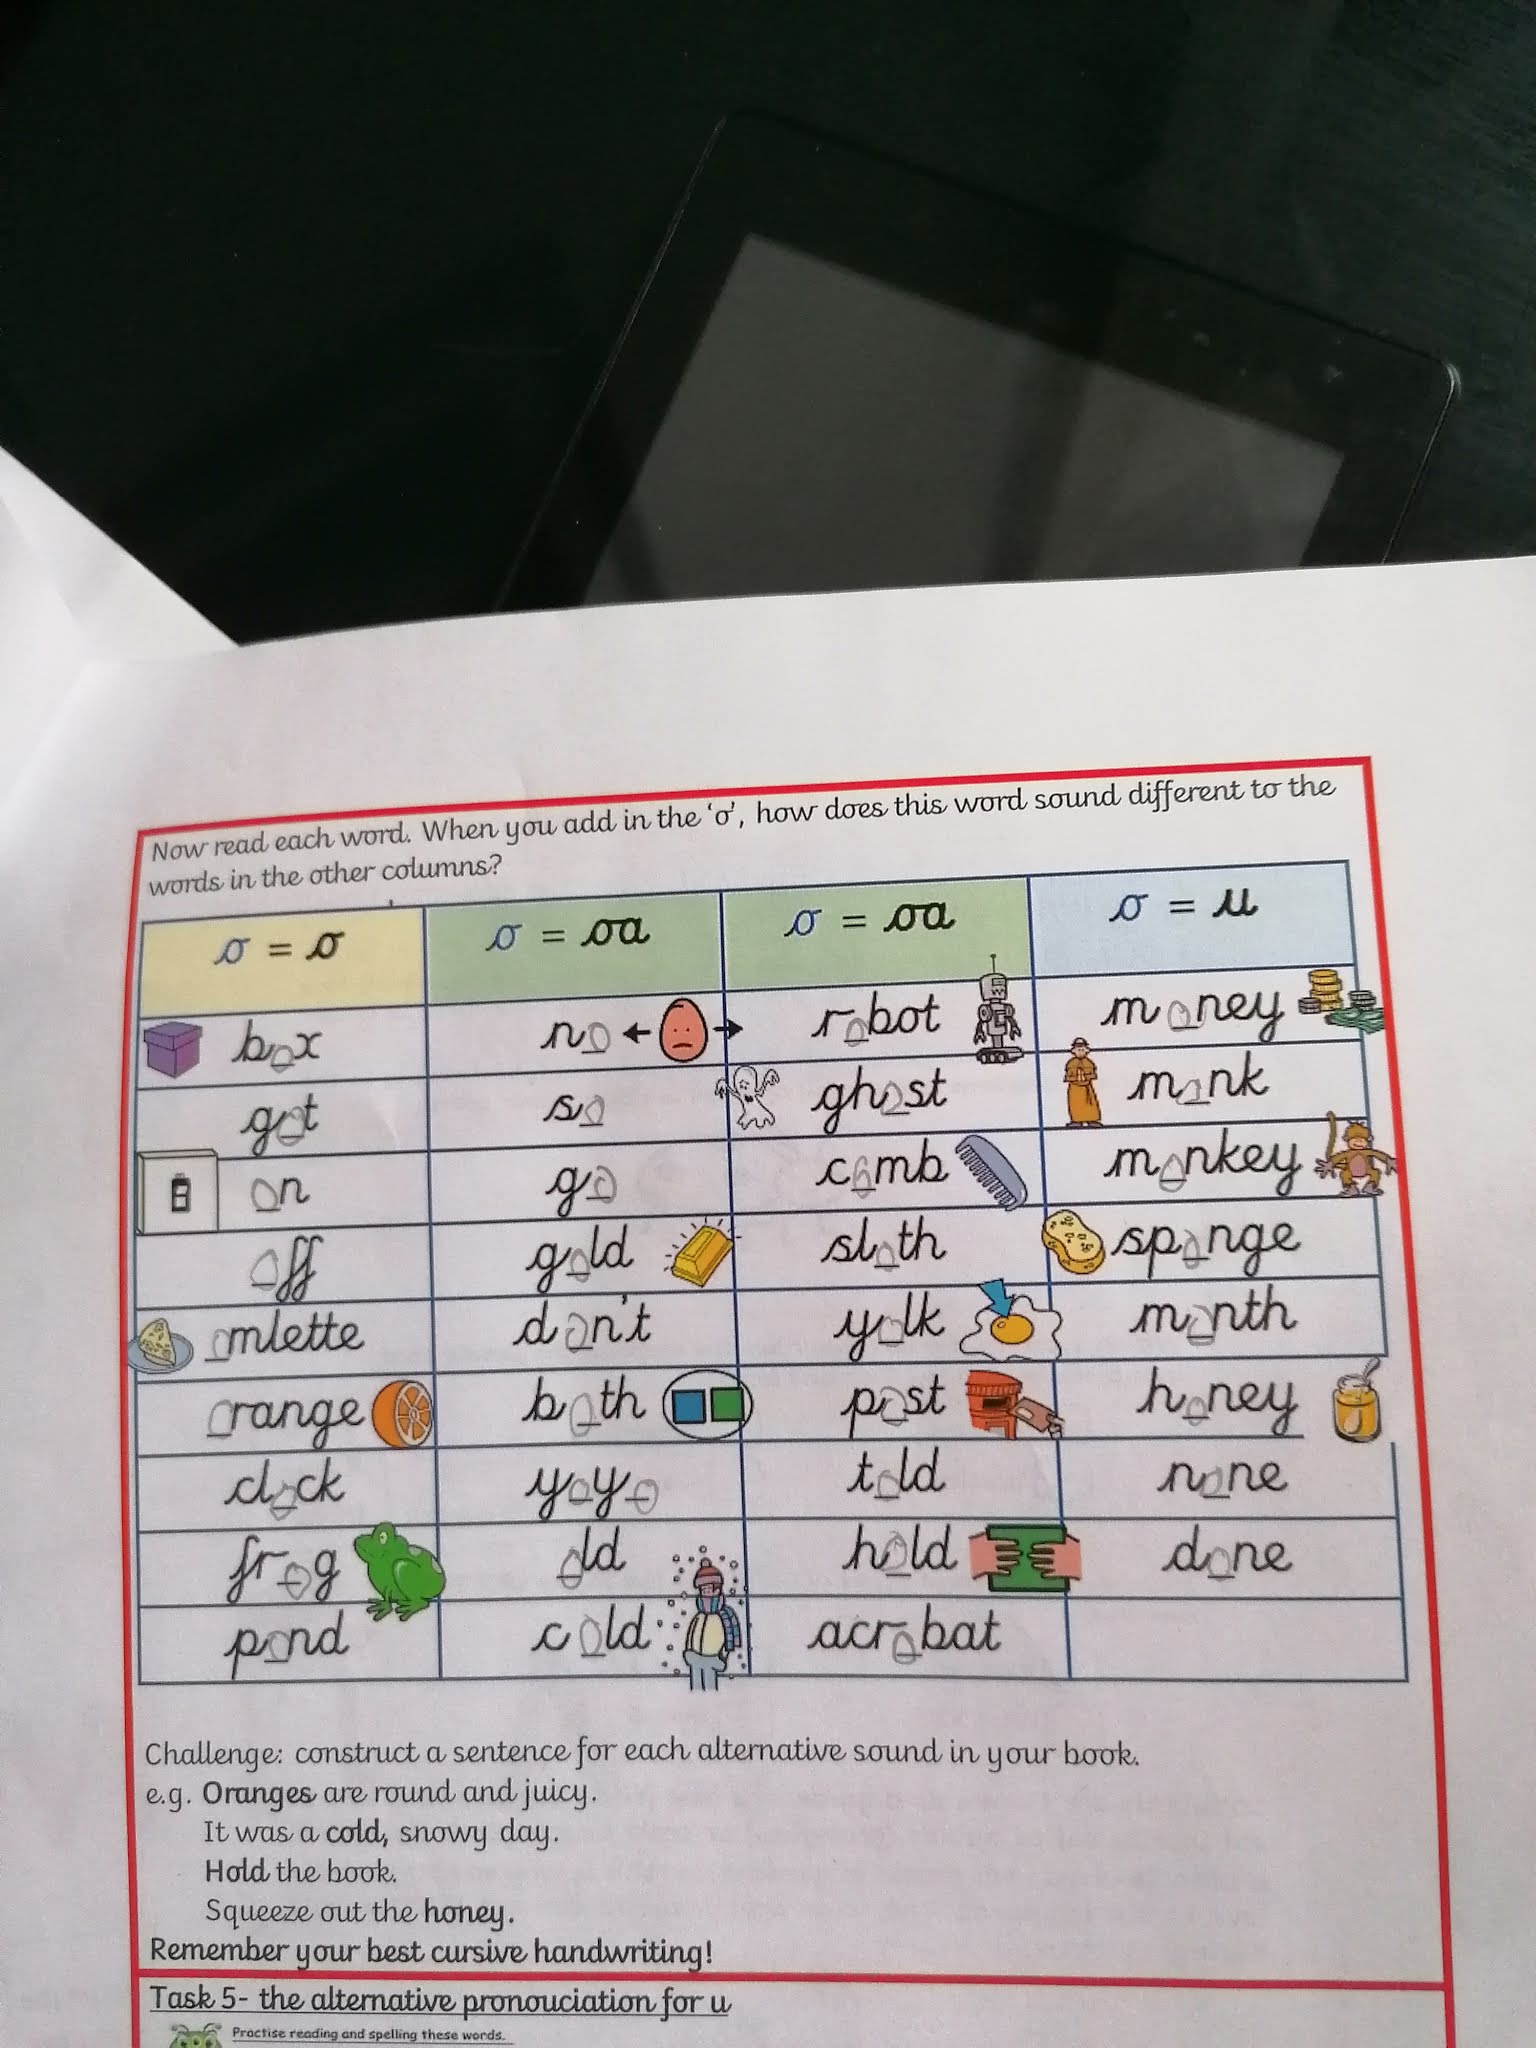 Now read each word. When you add in the 'o', how does this word sound different to the
words in the other columns?
o = o o = oa o = oa o = u
box no robot money
got so ghost monk
on go comb monkey
off gold sloth sponge
omlette don't yolk month
orange both post honey
clock yoyo told none
frog old hold done
pond cold acrobat
Challenge: construct a sentence for each alternative sound in your book.
e.g. Oranges are round and juicy.
It was a cold, snowy day.
Hold the book.
Squeeze out the honey.
Remember your best cursive handwriting!
Task 5- the alternative pronouciation for u
Practise reading and spelling these words.